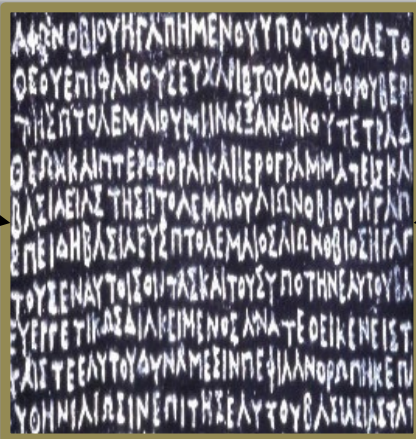 ΩΝΟΒΙΟΥΗΓΑΠΗΜΕΝΟΥΥΠΟΤΟΥΦΘΑΕΤΟ
ΘΕΟΥΕΠΙΦΑΝΟΥΣΕΥΧΑΡΙΣΤΟΥΑΘΛΟΦΟΡΟΥΒΕΡ
ΤΗΣΠΤΟΛΕΜΑΙΟΥΜΗΝΟΣΞΑΝΔΙΚΟΥΤΕΤΡΑΔ
ΘΕΩΝΚΑΙΠΤΕΡΟΦΟΡΑΙΚΑΙΙΕΡΟΓΡΑΜΜΑΤΕΙΣΚΑ
ΒΑΣΙΛΕΙΑΣΤΗΣΠΤΟΛΕΜΑΙΟΥΑΙΩΝΟΒΙΟΥΗΓΑΠ
ΕΠΕΙΔΗΒΑΣΙΛΕΥΣΠΤΟΛΕΜΑΙΟΣΑΙΩΝΟΒΙΟΣΗΓΑΠ
ΤΟΥΣΕΝΑΥΤΟΙΣΟΝΤΑΣΚΑΙΤΟΥΣΥΠΟΤΗΝΕΑΥΤΟΥΒΑ
ΕΥΕΡΓΕΤΙΚΩΣΔΙΑΚΕΙΜΕΝΟΣΑΝΑΤΕΘΕΙΚΕΝΕΙΣΤ
ΤΑΙΣΤΕΕΑΥΤΟΥΔΥΝΑΜΕΣΙΝΠΕΦΙΛΑΝΘΡΩΠΗΚΕΠΑ
ΥΘΗΝΙΑΙΩΣΙΝΕΠΙΤΗΣΕΑΥΤΟΥΒΑΣΙΛΕΙΑΣΤΑ